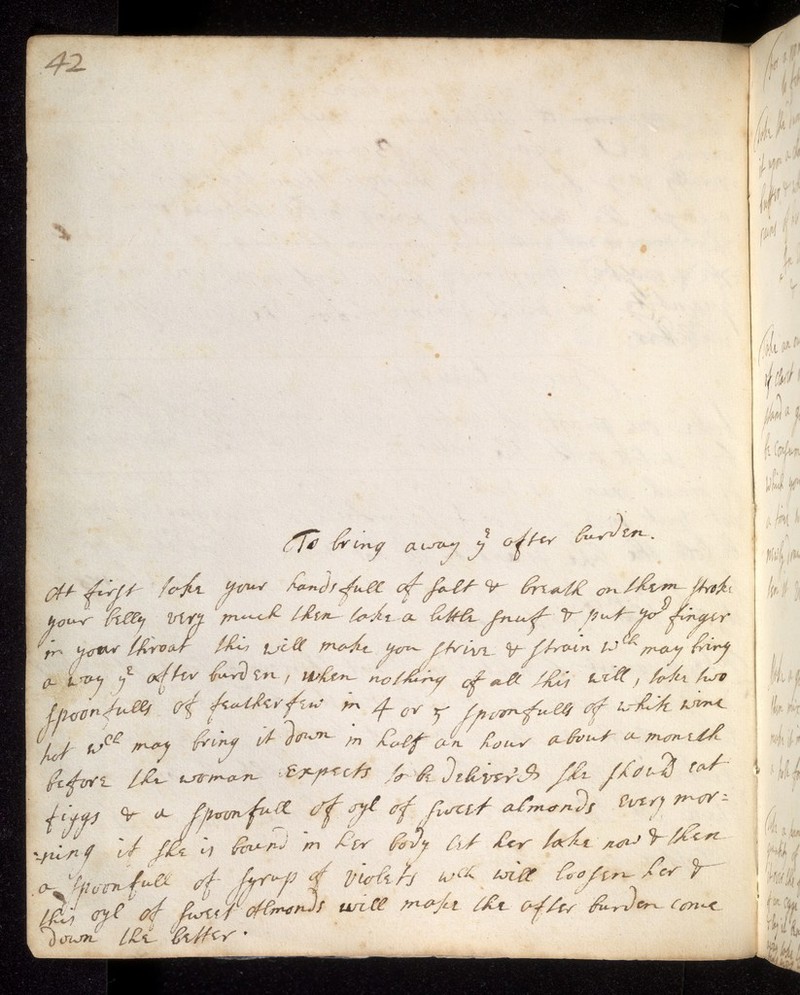 42
To bring away yᵉ after burden.
At first take your hands full of salt & breath on them stroke
your belly very much then take a little snuf & put yoʳ finger
in your throat this will make you strive & strain wᶜʰ may bring
a way yᵉ after burden, when nothing of all this will, take two
spoonfulls of featherfew in 4 or 5 spoonfulls of white wine
hot wᶜʰ may bring it down in half an hour about a moneth
before the woman Expects to be Deliver'd she should eat
figgs & a spoonfull of oyl of sweet almonds every mor=
=ning if she is bound in her body let her take now & then
a spoonfull of syrup of violets wᶜʰ will loosen her &
this oyl of sweet Almonds will make the after burden come
down the better.